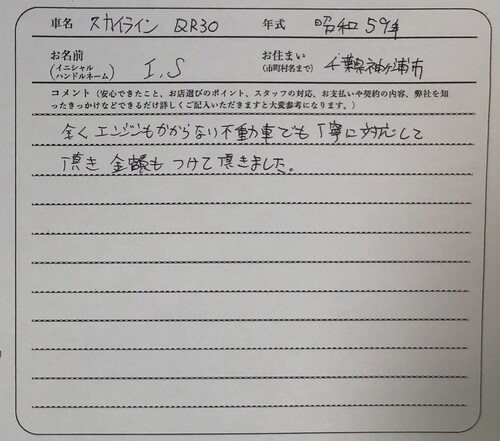 車名 スカイライン DR30 年式 昭和59年
お名前
(イニシャル
ハンドルネーム) I.S
お住まい
(市町村名まで) 千葉県袖ヶ浦市
コメント(安心できたこと、お店選びのポイント、スタッフの対応、お支払いや契約の内容、弊社を知
ったきっかけなどできるだけ詳しくご記入いただきますと大変参考になります。)
全くエンジンもかからない不動車でも丁寧に対応して
頂き 金額も つけて頂きました。